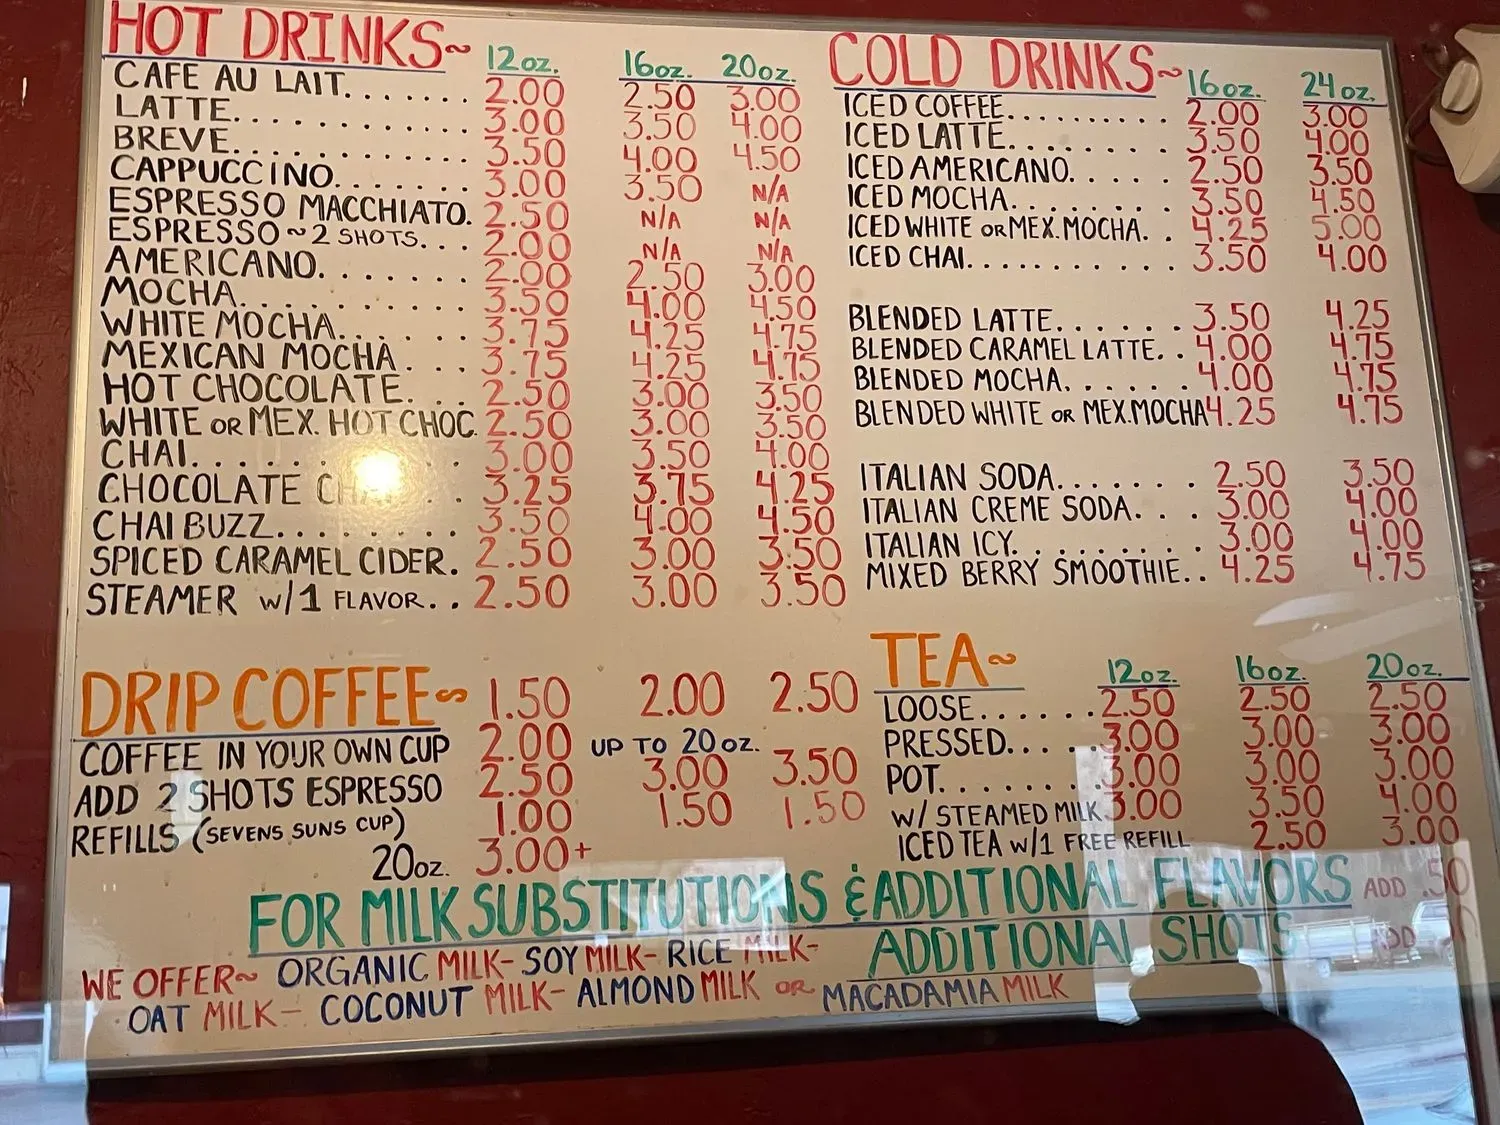 HOT DRINKS~ 12oz. 16oz. 20oz.
CAFE AU LAIT....... 2.00 2.50 3.00
LATTE............ 3.00 3.50 4.00
BREVE............ 3.50 4.00 4.50
CAPPUCCINO....... 3.00 3.50 N/A
ESPRESSO MACCHIATO. 2.50 N/A N/A
ESPRESSO~2 SHOTS... 2.00 N/A N/A
AMERICANO....... 2.00 2.50 3.00
MOCHA........... 3.50 4.00 4.50
WHITE MOCHA...... 3.75 4.25 4.75
MEXICAN MOCHA... 3.75 4.25 4.75
HOT CHOCOLATE... 2.50 3.00 3.50
WHITE OR MEX. HOT CHOC. 2.50 3.00 3.50
CHAI........... 3.00 3.50 4.00
CHOCOLATE 3.25 3.75 4.25
CHAI BUZZ........ 3.50 4.00 4.50
SPICED CARAMEL CIDER. 2.50 3.00 3.50
STEAMER W/1 FLAVOR.. 2.50 3.00 3.50
DRIP COFFEE~ 1.50 2.00 2.50
COFFEE IN YOUR OWN CUP 2.00 UP TO 20oz.
ADD 2 SHOTS ESPRESSO 2.50 3.00 3.50
REFILLS (SEVENS SUNS CUP) 1.00 1.50 1.50
20oz. 3.00+
COLD DRINKS~ 16oz. 24oz.
ICED COFFEE.......... 2.00 3.00
ICED LATTE.......... 3.50 4.00
ICED AMERICANO..... 2.50 3.50
ICED MOCHA........ 3.50 4.50
ICED WHITE OR MEX. MOCHA.. 4.25 5.00
ICED CHAI........... 3.50 4.00
BLENDED LATTE...... 3.50 4.25
BLENDED CARAMEL LATTE.. 4.00 4.75
BLENDED MOCHA...... 4.00 4.75
BLENDED WHITE OR MEX.MOCHA 4.25 4.75
ITALIAN SODA....... 2.50 3.50
ITALIAN CREME SODA... 3.00 4.00
ITALIAN ICY......... 3.00 4.00
MIXED BERRY SMOOTHIE.. 4.25 4.75
TEA~ 12oz. 16oz. 20oz.
LOOSE...... 2.50 2.50 2.50
PRESSED..... 3.00 3.00 3.00
POT........ 3.00 3.00 3.00
W/ STEAMED MILK 3.00 3.50 4.00
ICED TEA W/1 FREE REFILL 2.50 3.00
FOR MILK SUBSTITUTIONS & ADDITIONAL FLAVORS ADD .50
ADDITIONAL SHOTS
WE OFFER~ ORGANIC MILK- SOY MILK- RICE MILK-
OAT MILK- COCONUT MILK- ALMOND MILK OR MACADAMIA MILK